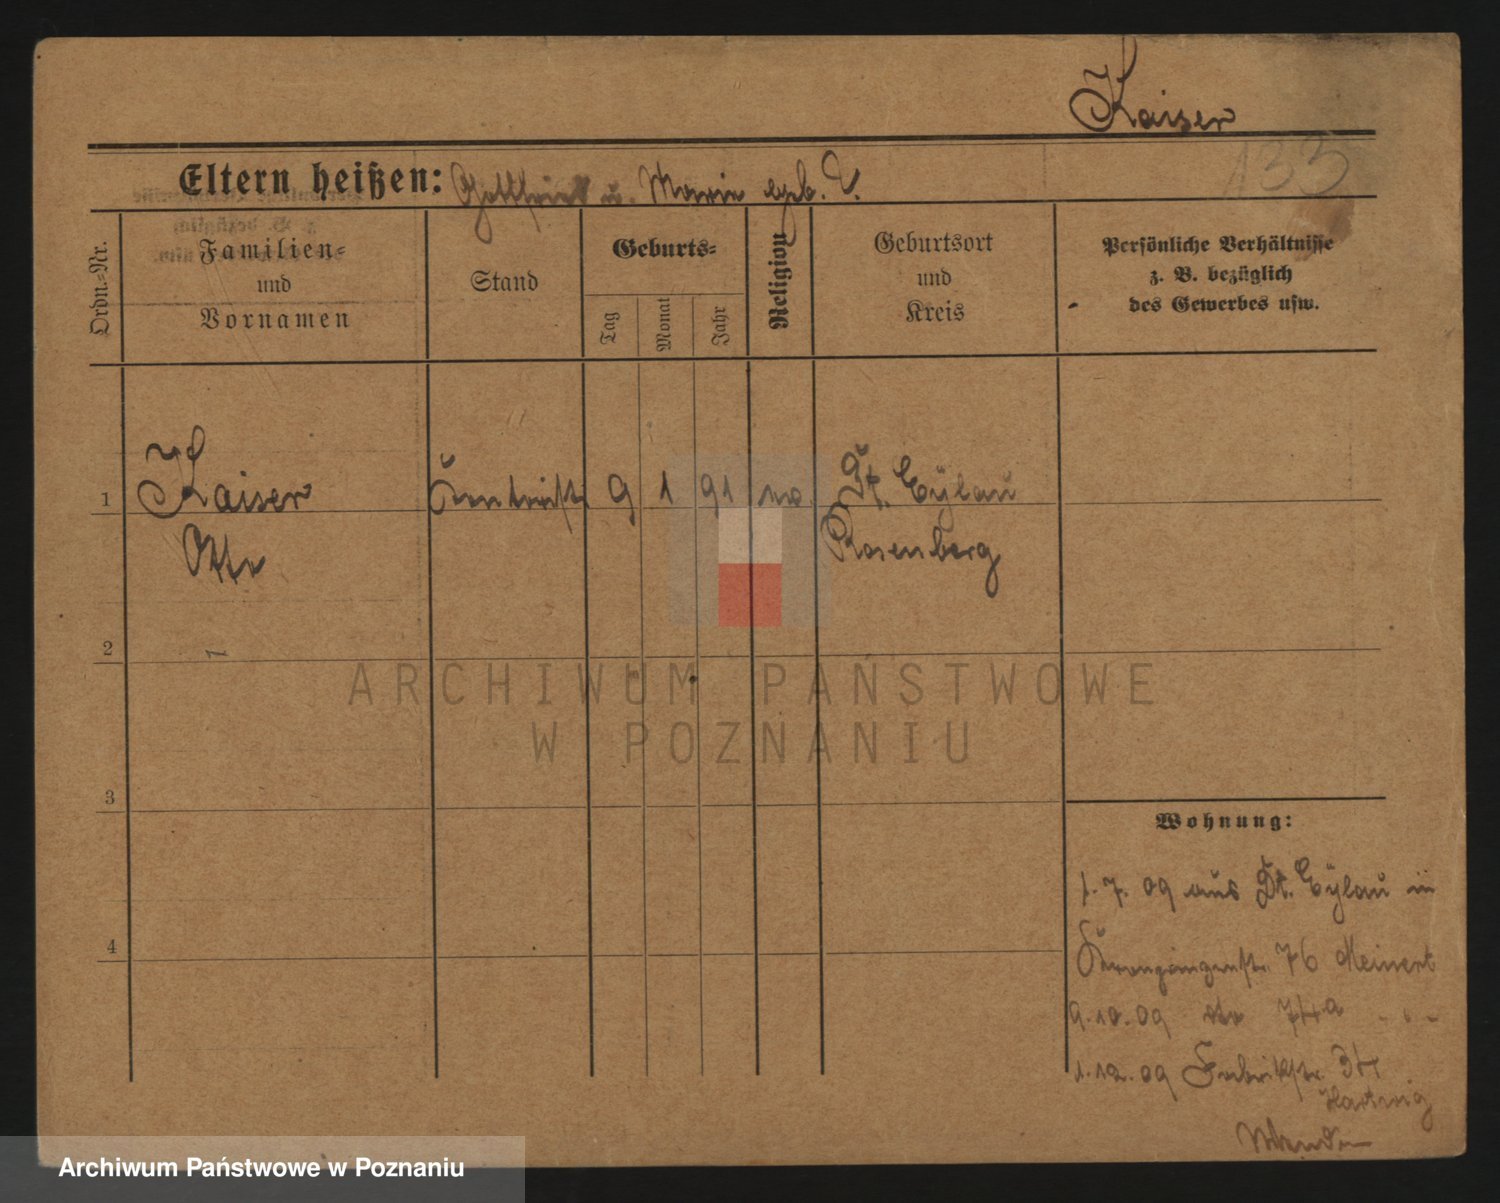 Kaiser
133
Eltern heißen: Gottfried u. Marie geb. E.
Ordn.-Nr.
Familien-
und
Vornamen
Stand
Geburts-
Tag
Monat
Jahr
Religion
Geburtsort
und
Kreis
Persönliche Verhältnisse
z. B. bezüglich
des Gewerbes usw.
1
Kaiser
Otto
9 1 91
Dt. Eylau
Rosenberg
2
3
4
Wohnung:
1. 7. 09 aus Dt. Eylau in
76 Meinert
9. 10. 09 dto 74a " " "
1. 12. 09 Fabrikstr. 34
Hartwig
Wenden
ARCHIWUM PAŃSTWOWE
W POZNANIU
Archiwum Państwowe w Poznaniu